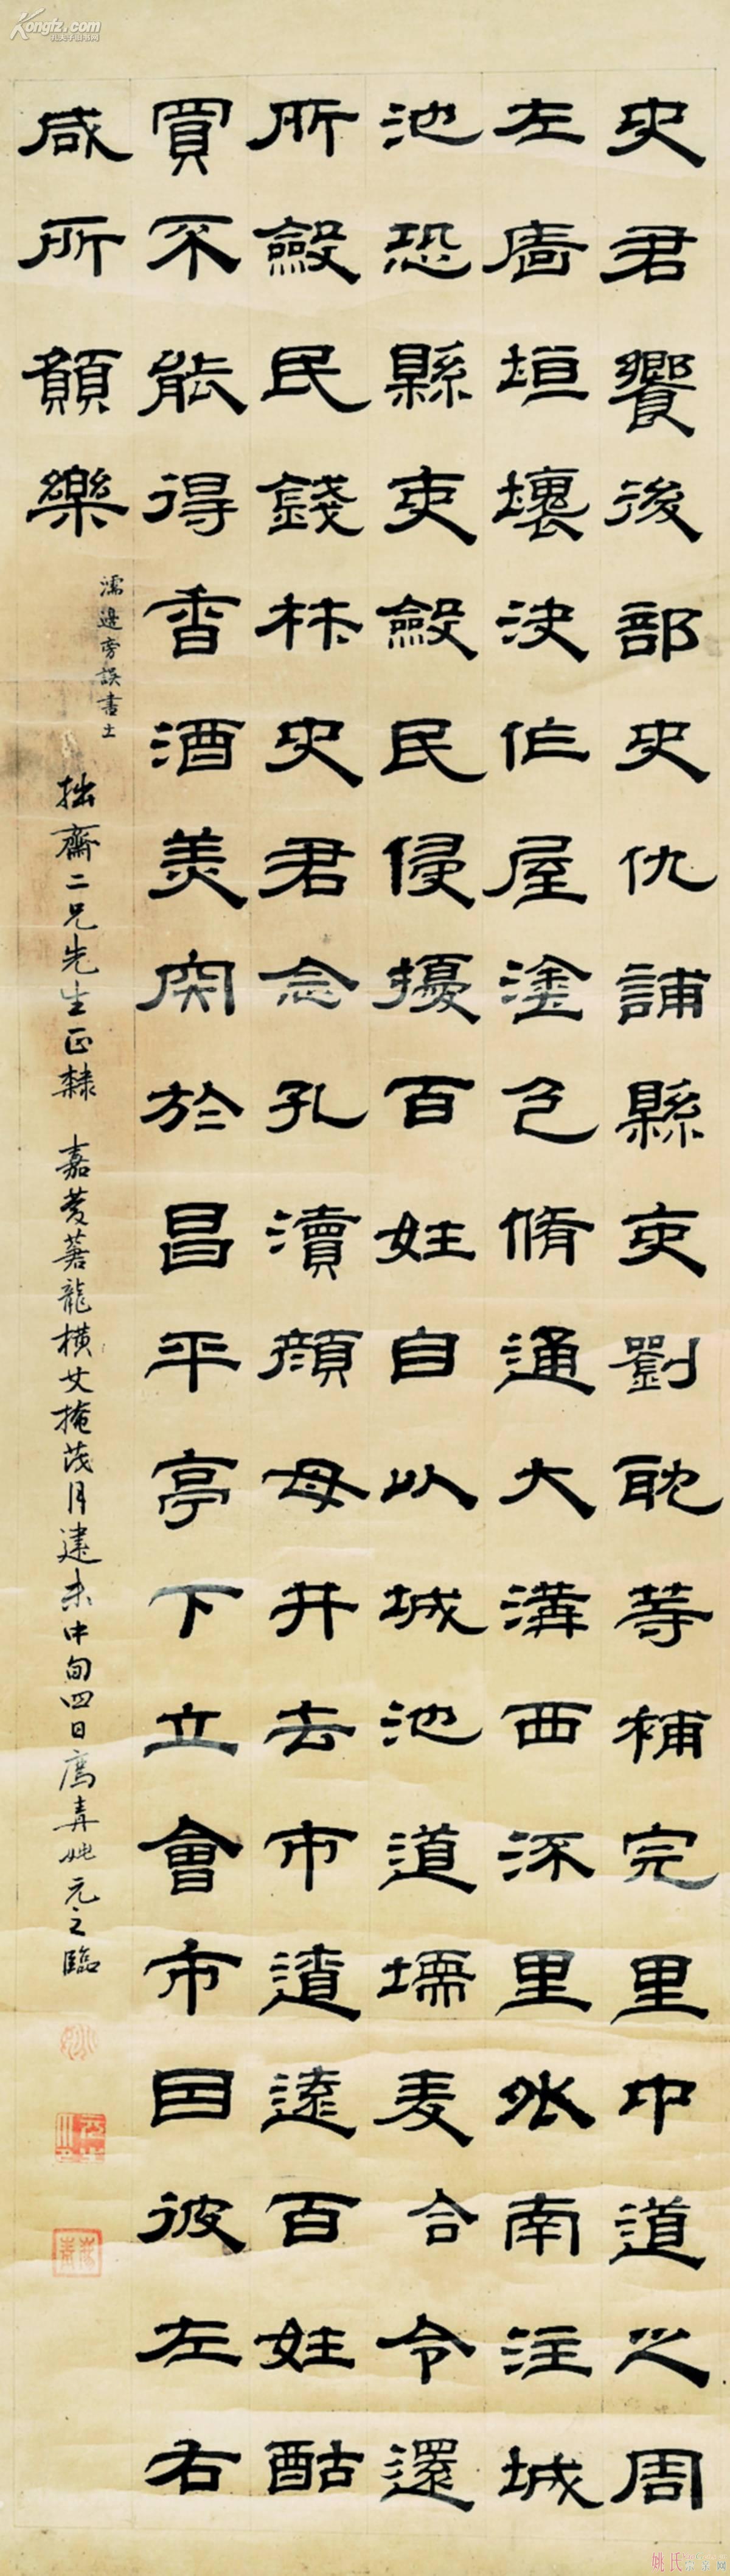 史君饗後部史仇誧縣吏劉耽等補完里中道之周
左廧垣壞決作屋塗色脩通大溝西流里外南注城
池恐縣吏斂民侵擾百姓自以城池道壖麦合令還
所斂民錢材史君念孔瀆顏母井去市遼遠百姓酤
買不能得香酒美肉於昌平亭下立會市因彼左右
咸所願樂
濡邊旁誤書土
拙齋二兄先生正隸 嘉慶著龍橫艾掩茂月建未中旬四日廌青姚元之臨
Kongfz.com
孔夫子旧书网